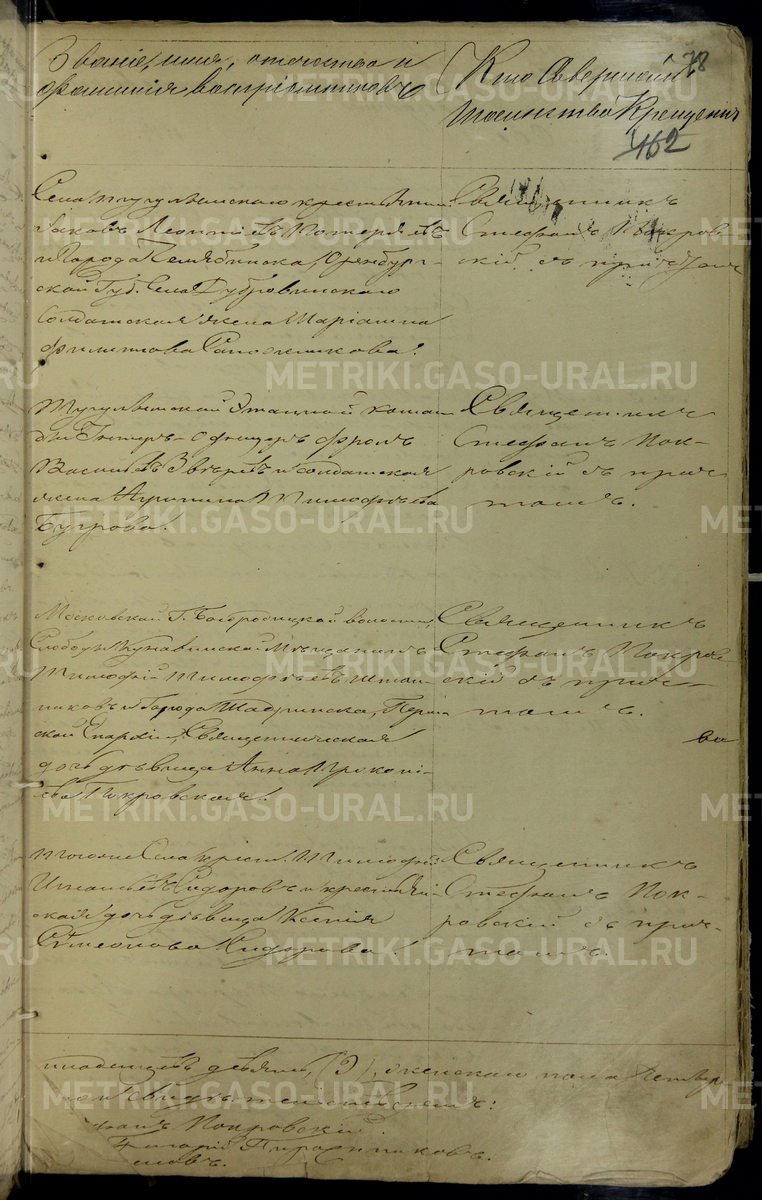 Званіе, имя, отчество и
фамилія воспріемниковъ
Кто совершалъ
таинство Крещенія
78
462
Села Тугулымскаго крестьянинъ
Яковъ Леонтіевъ
и Города Челябинска, Оренбург-
ской Губ. Села Дубровинскаго
Солдатская жена Маріамна
Филиппова Сапожникова.
Священникъ
Стефанъ Покров-
скій съ причтомъ
Тугулымской Этапной коман-
ды Унтеръ-Офицеръ Фролъ
Васильевъ Звѣревъ и солдатская
жена Агрипина Тимофѣева
Бугрова.
Священникъ
Стефанъ Пок-
ровскій съ прич-
томъ.
Московской Г. Богородицкой волости,
Слободы Кунавинской Мѣщанинъ
Тимофей Тимофѣевъ
и Города Шадринска, Перм-
ской Епархіи, Священническая
дочь дѣвица Анна Прокопі-
ева Покровская.
Священникъ
Стефанъ Покров-
скій съ прич-
томъ.
Тогоже Села крест. Тимофей
Игнатьевъ Сидоровъ и крестьян-
ская дочь дѣвица Ксенія
Симеонова Сидорова.
Священникъ
Стефанъ Пок-
ровскій съ прич-
томъ.
девять, (9), женскаго пола
Покровскій.
Григорій
METRIKI.GASO-URAL.RU